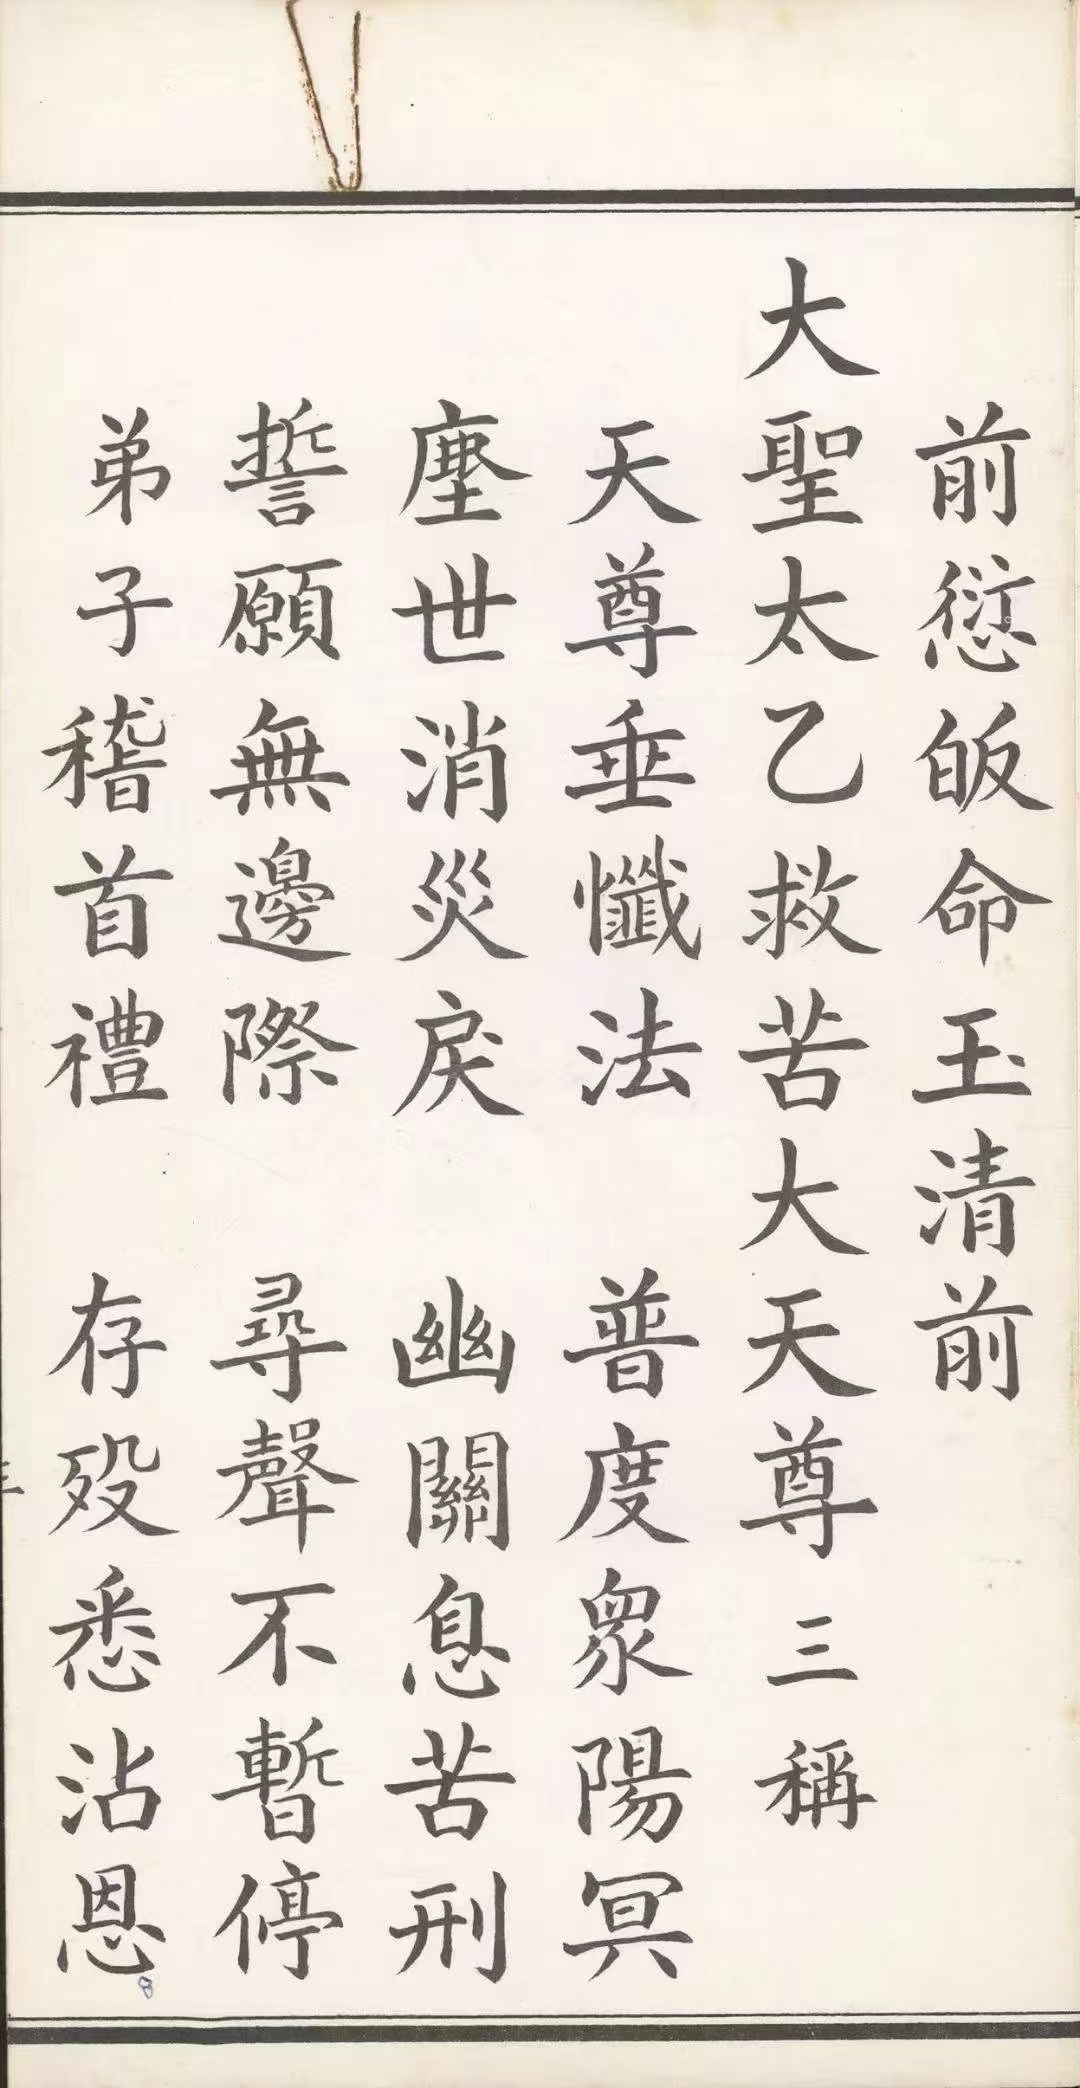 前愆皈命玉清前
大聖太乙救苦大天尊三稱
天尊垂懺法 普度眾陽冥
塵世消災戾 幽關息苦刑
誓願無邊際 尋聲不暫停
弟子稽首禮 存歿悉沾恩
8